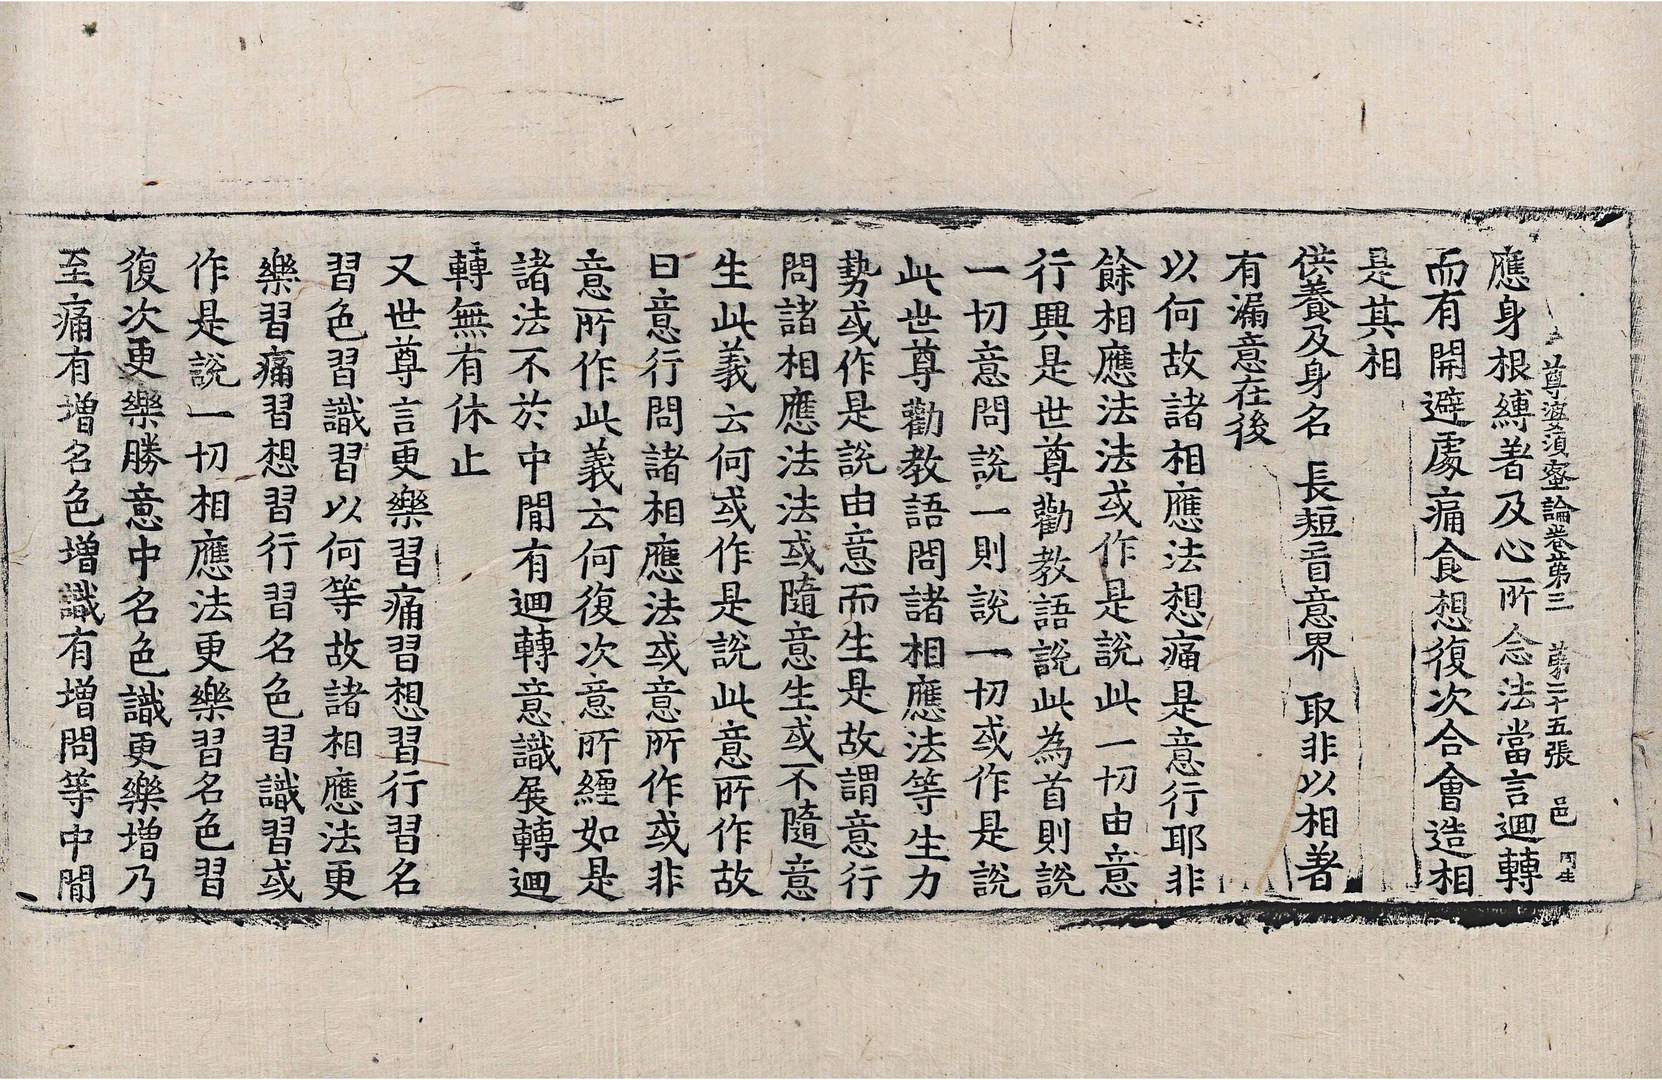 尊婆須蜜論卷第三 第二十五張 邑
應身根縛著及心所念法當言迴轉
而有開避處痛食想復次合會造相
是其相
供養及身名 長短音意界 取非以相著
有漏意在後
以何故諸相應法想痛是意行耶非
餘相應法法或作是說此一切由意
行興是世尊勸教語說此為首則說
一切意問說一則說一切或作是說
此世尊勸教語問諸相應法等生力
勢或作是說由意而生是故謂意行
問諸相應法法或隨意生或不隨意
生此義云何或作是說此意所作故
曰意行問諸相應法或意所作或非
意所作此義云何復次意所纏如是
諸法不於中間有迴轉意識展轉迴
轉無有休止
又世尊言更樂習痛習想習行習名
習色習識習以何等故諸相應法更
樂習痛習想習行習名色習識習或
作是說一切相應法更樂習名色習
復次更樂勝意中名色識更樂增乃
至痛有增名色增識有增問等中間